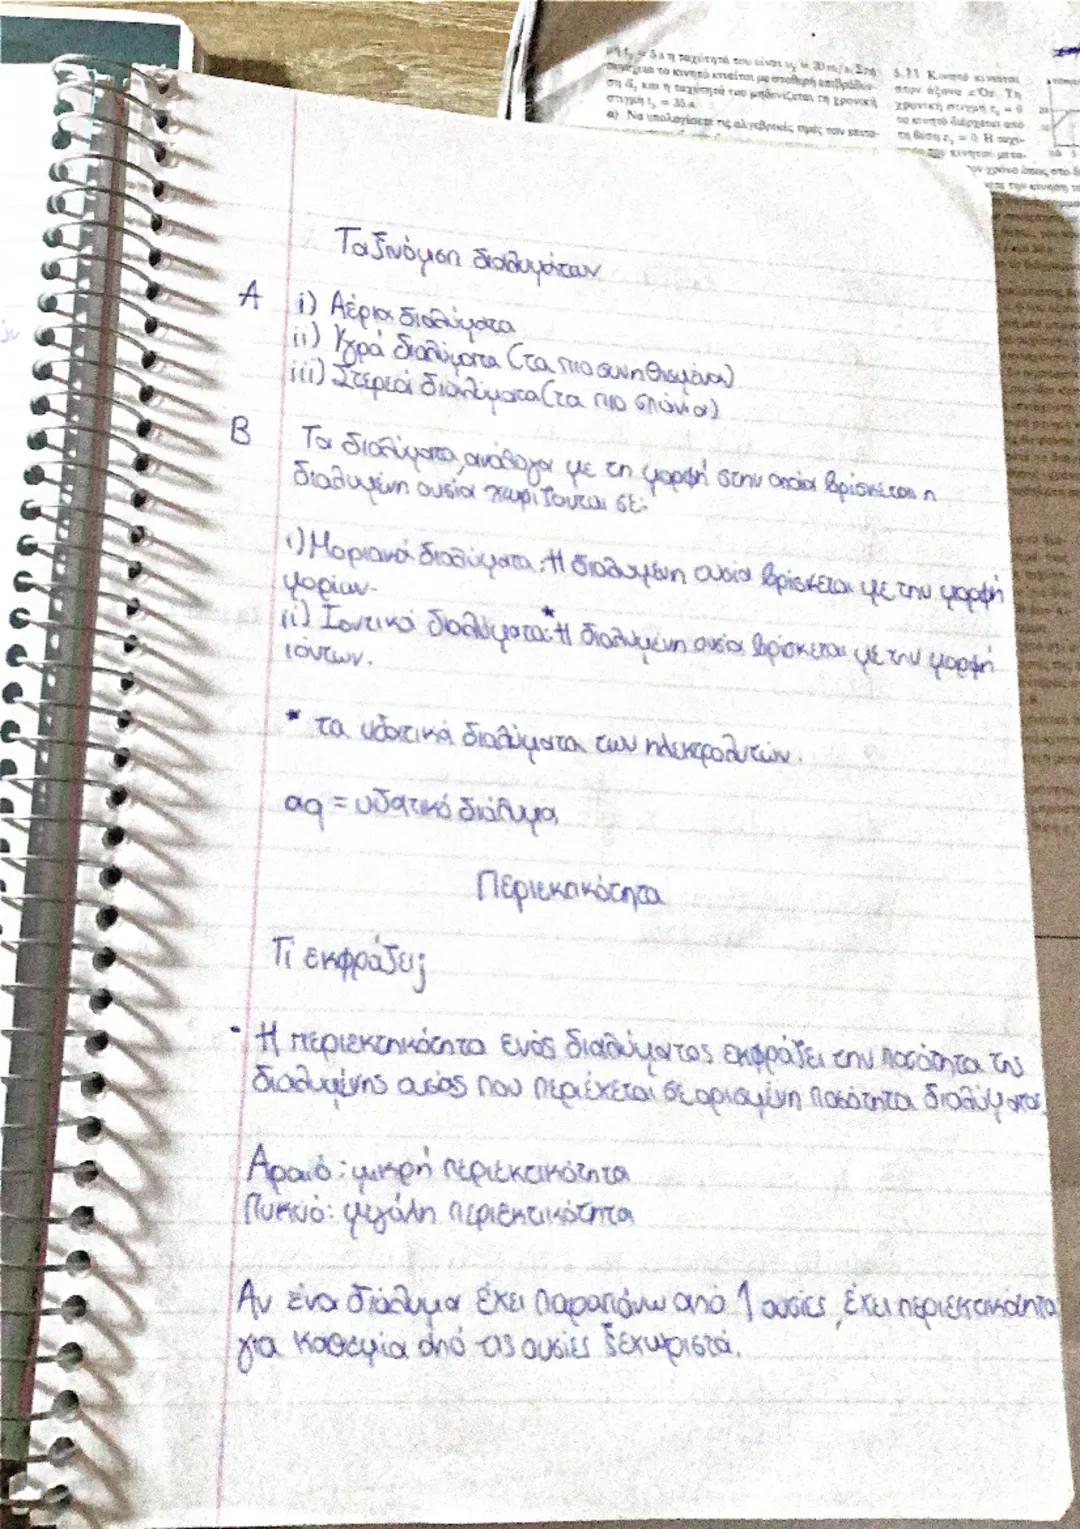 μή t₁ = 5 s η ταχύτητά του είναι υ₁ = 20 m/s. Στη
συνέχεια το κινητό κινείται με σταθερή επιβράδυν-
ση α₂ και η ταχύτητά του μηδενίζεται τη χρονική
στιγμή t₂ = 35 s.
α) Να υπολογίσετε τις αλγεβρικές τιμές των επιτα-
5.11 Κινητό κινείται
στον άξονα x'Ox. Τη
χρονική στιγμή t₀ = 0
το κινητό διέρχεται από
τη θέση x₀ = 0. Η ταχύ-
Ταξινόμιση διαλυμάτων
A i) Αέρια διαλύματα
ii) Υγρά διαλύματα (τα πιο συνηθισμένα)
iii) Στερεά διαλύματα (τα πιο σπάνια)
B Τα διαλύματα, ανάλογα με τη μορφή στην οποία βρίσκεται η
διαλυμένη ουσία χωρίζονται σε:
i) Μοριακά διαλύματα: Η διαλυμένη ουσία βρίσκεται με την μορφή
μορίων.
ii) Ιοντικά διαλύματα:* Η διαλυμένη ουσία βρίσκεται με την μορφή
ιόντων.
* τα υδατικά διαλύματα των ηλεκτρολυτών.
aq = υδατικό διάλυμα
Περιεκακότητα
Τι εκφράζει;
- Η περιεκτικότητα ενός διαλύματος εκφράζει την ποσότητα της
διαλυμένης ουσίας που περιέχεται σε ορισμένη ποσότητα διαλύματος.
Αραιό: μικρή περιεκτικότητα
Πυκνό: μεγάλη περιεκτικότητα
Αν ένα διάλυμα έχει παραπάνω από 1 ουσίες, έχει περιεκτικότητα
για καθεμία από τις ουσίες ξεχωριστά.